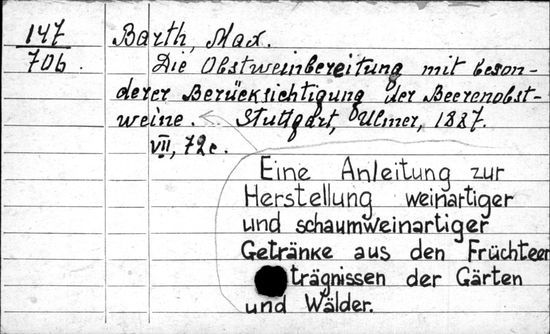 147
706.
Barth, Max.
Die Obstweinbereitung mit beson-
derer Berücksichtigung der Beerenobst-
weine. Stuttgart, Ulmer, 1887.
VII, 72 c.
Eine Anleitung zur
Herstellung weinartiger
und schaumweinartiger
Getränke aus den Früchteer
trägnissen der Gärten
und Wälder.